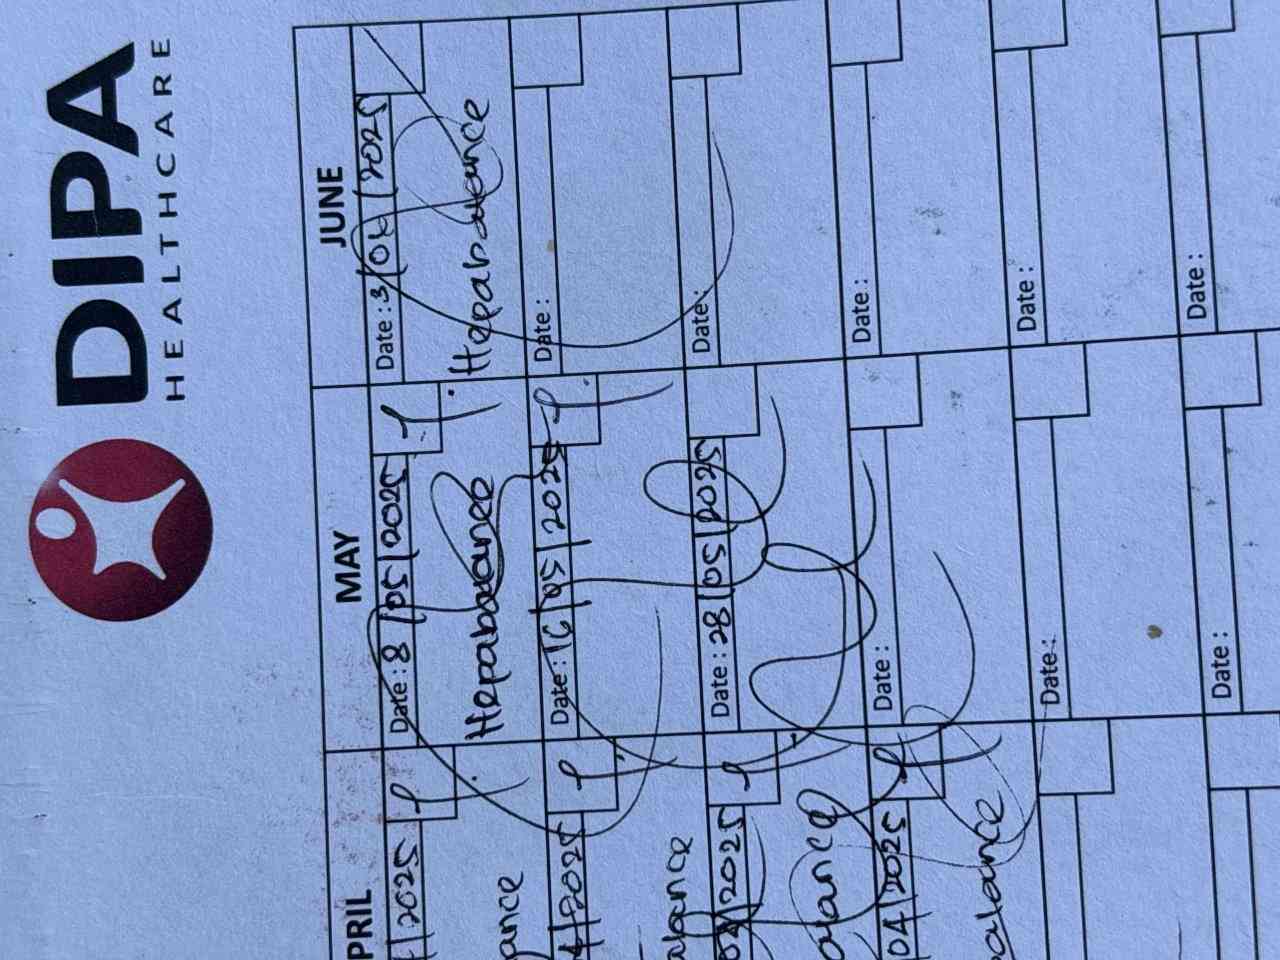 DIPA
HEALTHCARE
PRIL
/2025
ance
4/2025
alance
04/2025
alance
04/2025
balance
MAY
Date : 8/05/2025
Hepabalance
Date : 16/05/2025
Date : 28/05/2025
Date :
Date :
Date :
JUNE
Date : 3/06/2025
Hepabalance
Date :
Date :
Date :
Date :
Date :